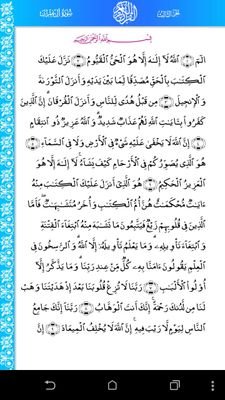 الجزء الثالث
القرآن الكريم
سورة آل عمران
بِسْمِ ٱللَّهِ ٱلرَّحْمَٰنِ ٱلرَّحِيمِ
الٓمٓ ۝١ ٱللَّهُ لَآ إِلَٰهَ إِلَّا هُوَ ٱلْحَىُّ ٱلْقَيُّومُ ۝٢ نَزَّلَ عَلَيْكَ
ٱلْكِتَٰبَ بِٱلْحَقِّ مُصَدِّقًا لِّمَا بَيْنَ يَدَيْهِ وَأَنزَلَ ٱلتَّوْرَىٰةَ
وَٱلْإِنجِيلَ ۝٣ مِن قَبْلُ هُدًى لِّلنَّاسِ وَأَنزَلَ ٱلْفُرْقَانَ ۗ إِنَّ ٱلَّذِينَ
كَفَرُوا۟ بِـَٔايَٰتِ ٱللَّهِ لَهُمْ عَذَابٌ شَدِيدٌ ۗ وَٱللَّهُ عَزِيزٌ ذُو ٱنتِقَامٍ
۝٤ إِنَّ ٱللَّهَ لَا يَخْفَىٰ عَلَيْهِ شَىْءٌ فِى ٱلْأَرْضِ وَلَا فِى ٱلسَّمَآءِ ۝٥
هُوَ ٱلَّذِى يُصَوِّرُكُمْ فِى ٱلْأَرْحَامِ كَيْفَ يَشَآءُ ۚ لَآ إِلَٰهَ إِلَّا هُوَ
ٱلْعَزِيزُ ٱلْحَكِيمُ ۝٦ هُوَ ٱلَّذِىٓ أَنزَلَ عَلَيْكَ ٱلْكِتَٰبَ مِنْهُ
ءَايَٰتٌ مُّحْكَمَٰتٌ هُنَّ أُمُّ ٱلْكِتَٰبِ وَأُخَرُ مُتَشَٰبِهَٰتٌ ۖ فَأَمَّا
ٱلَّذِينَ فِى قُلُوبِهِمْ زَيْغٌ فَيَتَّبِعُونَ مَا تَشَٰبَهَ مِنْهُ ٱبْتِغَآءَ ٱلْفِتْنَةِ
وَٱبْتِغَآءَ تَأْوِيلِهِۦ ۗ وَمَا يَعْلَمُ تَأْوِيلَهُۥٓ إِلَّا ٱللَّهُ ۗ وَٱلرَّٰسِخُونَ فِى
ٱلْعِلْمِ يَقُولُونَ ءَامَنَّا بِهِۦ كُلٌّ مِّنْ عِندِ رَبِّنَا ۗ وَمَا يَذَّكَّرُ إِلَّآ
أُو۟لُوا۟ ٱلْأَلْبَٰبِ ۝٧ رَبَّنَا لَا تُزِغْ قُلُوبَنَا بَعْدَ إِذْ هَدَيْتَنَا وَهَبْ
لَنَا مِن لَّدُنكَ رَحْمَةً ۚ إِنَّكَ أَنتَ ٱلْوَهَّابُ ۝٨ رَبَّنَآ إِنَّكَ جَامِعُ
ٱلنَّاسِ لِيَوْمٍ لَّا رَيْبَ فِيهِ ۚ إِنَّ ٱللَّهَ لَا يُخْلِفُ ٱلْمِيعَادَ ۝٩ إِنَّ